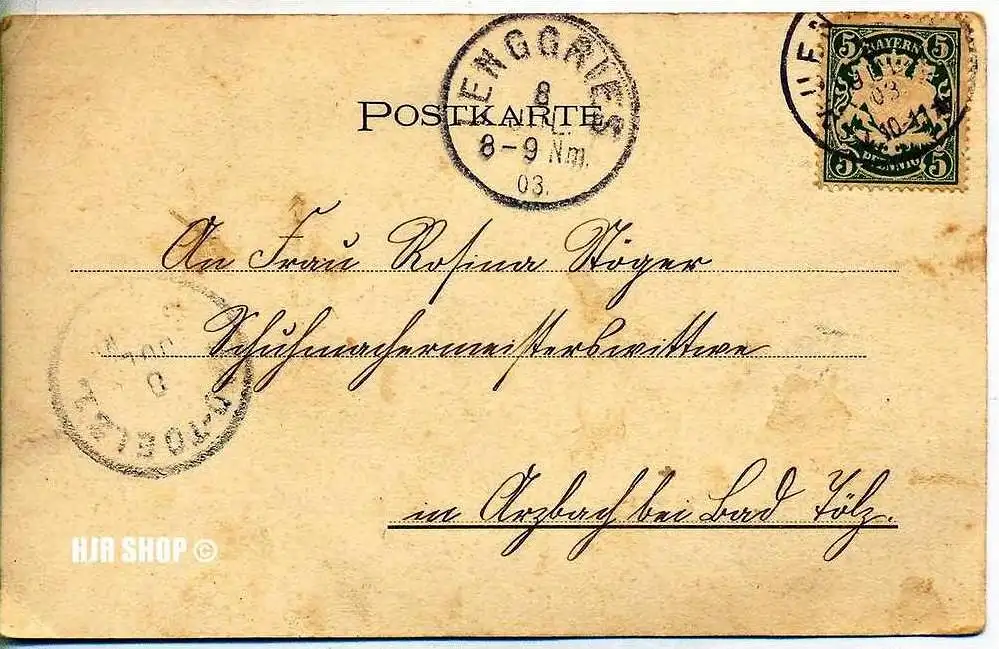 POSTKARTE
LENGGRIES
8
8-9 Nm.
03.
5 BAYERN 5
03
10-11
5 PFENNIG 5
An Frau Rosina Stöger
Schuhmachermeisterswittwe
in Arzbach bei Bad Tölz.
HJR SHOP ©